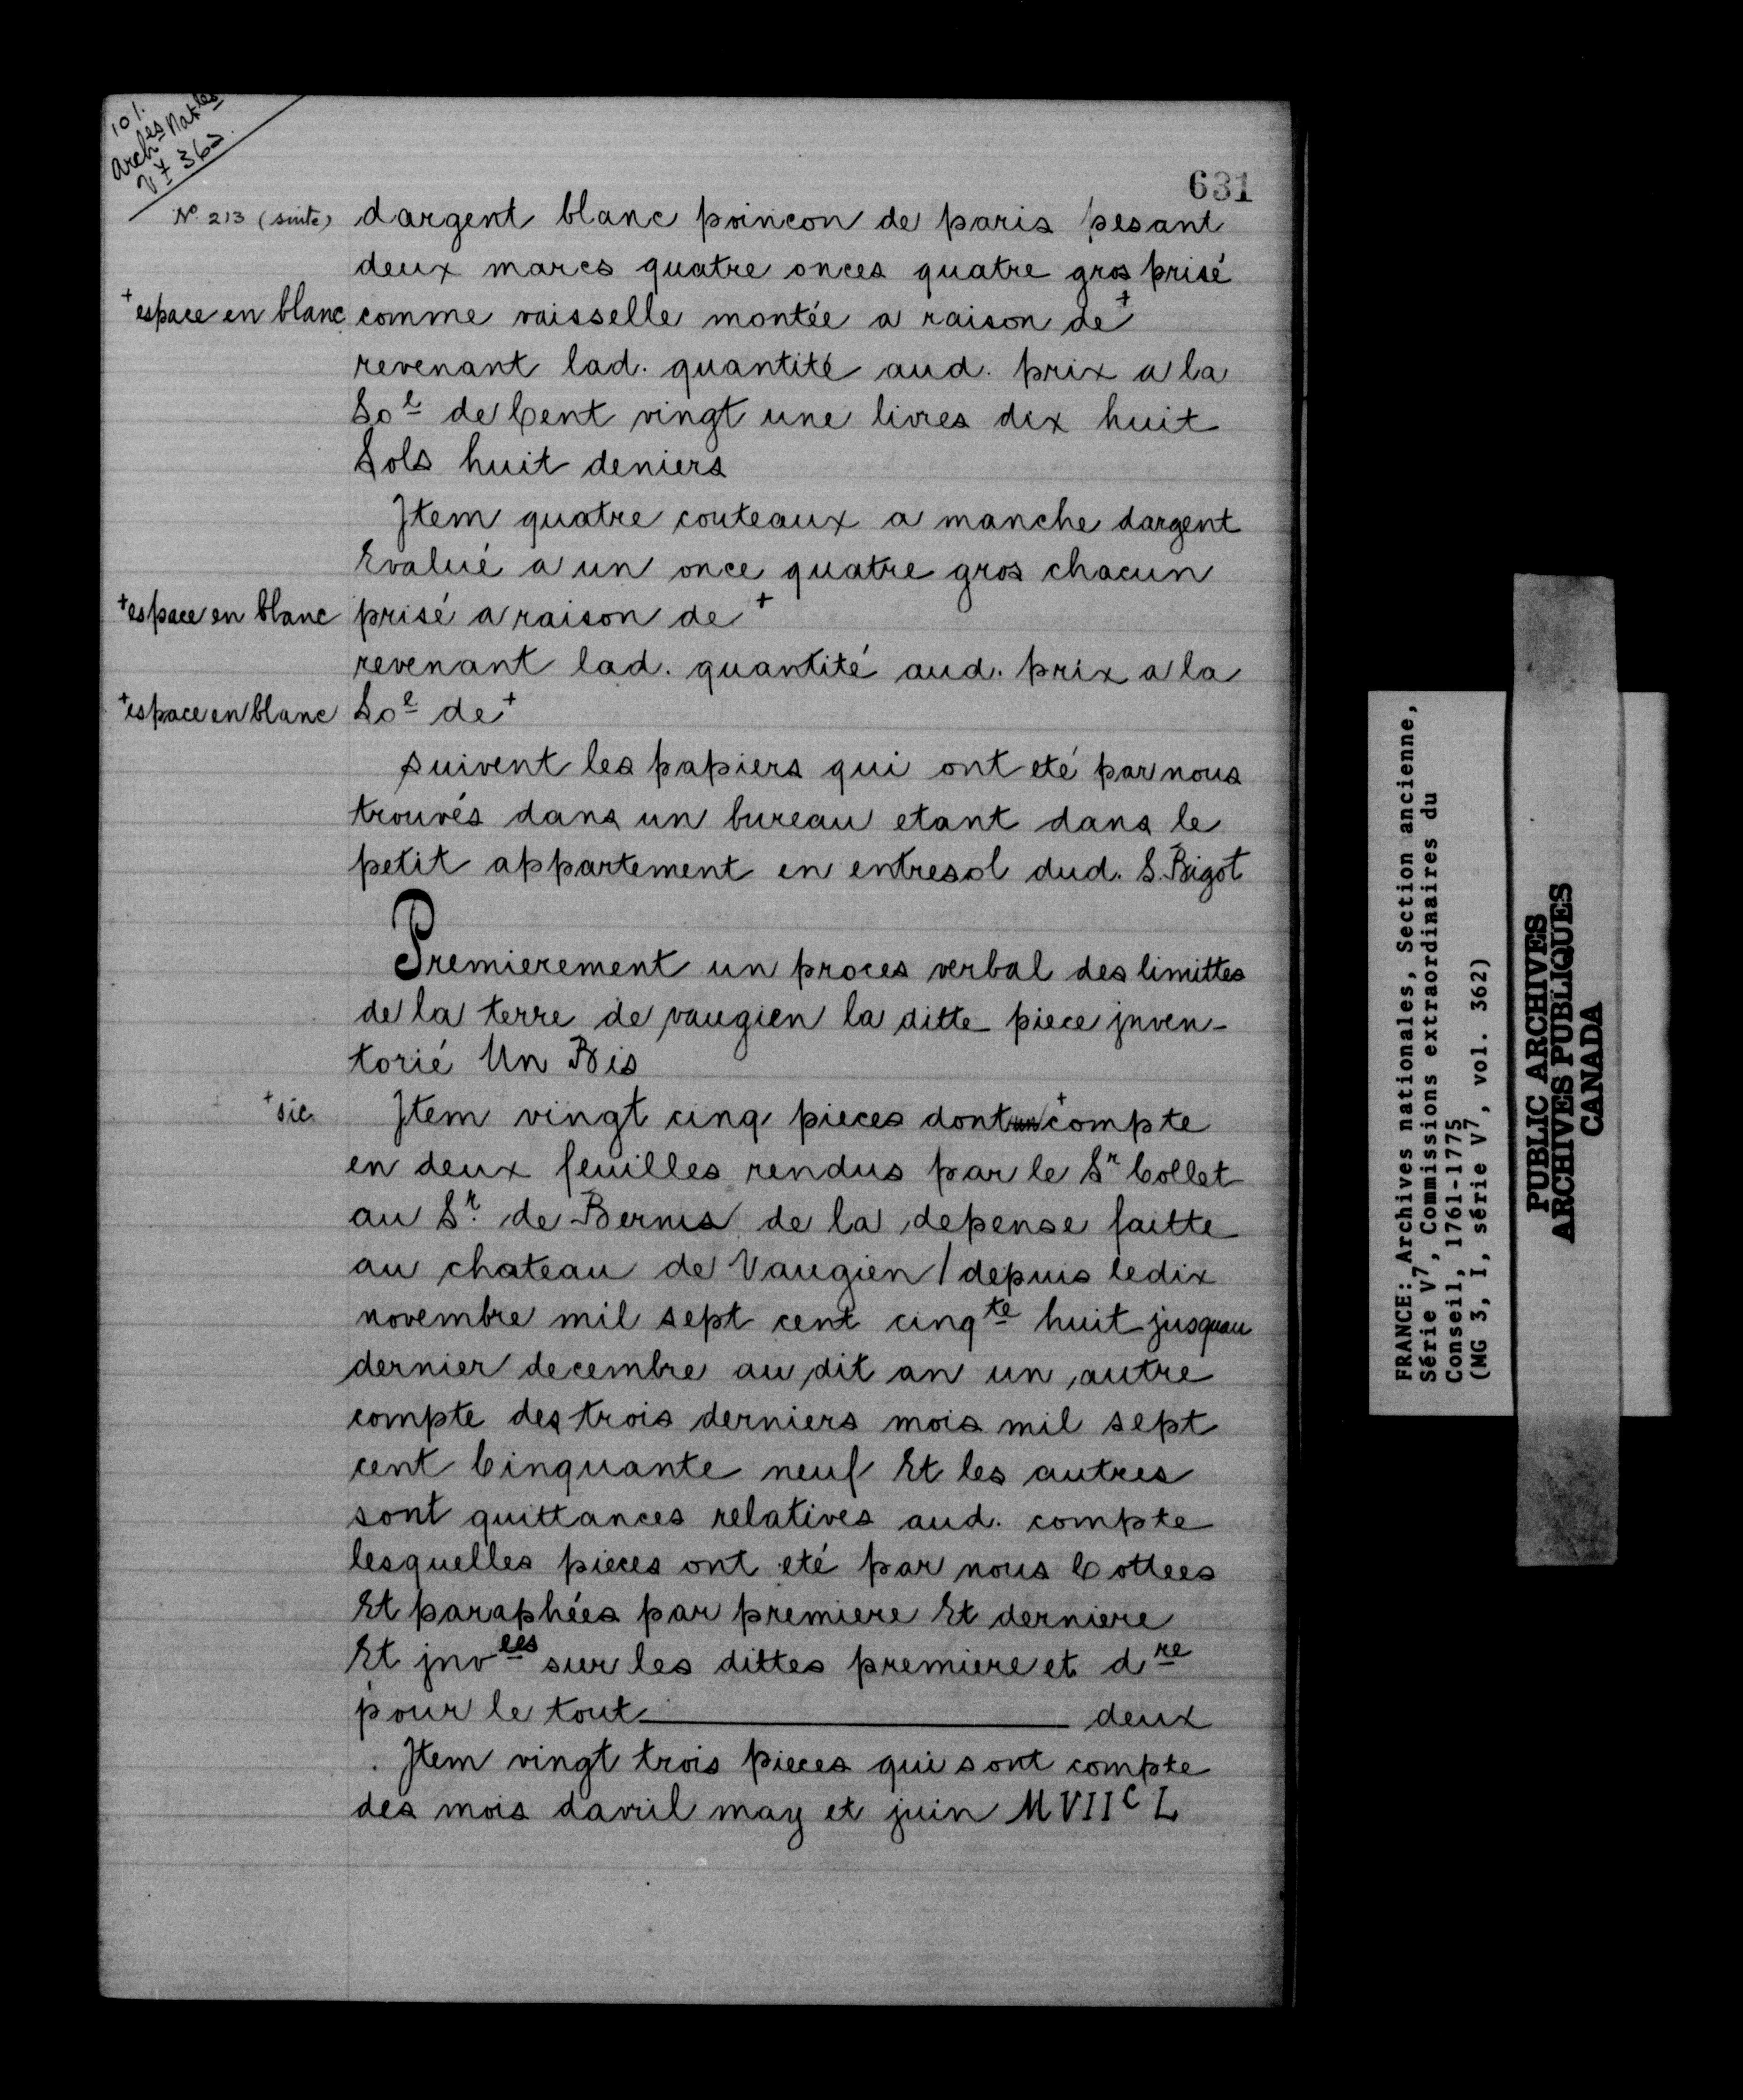 10/.
Arch^es Nat^les
V7 362.
631
N° 213 (suite)
dargent blanc poincon de paris pesant
deux marcs quatre onces quatre gros prisé
+espace en blanc
comme vaisselle montée a raison de+
revenant lad. quantité aud. prix a la
So^e de Cent vingt une livres dix huit
Sols huit deniers
Jtem quatre couteaux a manche dargent
Evalué a un once quatre gros chacun
+espace en blanc
prisé a raison de +
revenant lad. quantité aud. prix a la
+espace en blanc
So^e de+
suivent les papiers qui ont eté par nous
trouvés dans un bureau etant dans le
petit appartement en entresol dud. S. Bigot
Premierement un proces verbal des limittes
de la terre de vaugien la ditte piece jnven-
torié Un Bis
+sic
Jtem vingt cinq pieces dont un+ compte
en deux feuilles rendus par le S^r Collet
au S^r. de Bernis de la depense faitte
au chateau de Vaugien / depuis le dix
novembre mil sept cent cinq^te huit jusquau
dernier decembre au dit an un autre
compte des trois derniers mois mil sept
cent Cinquante neuf Et les autres
sont quittances relatives aud. compte
lesquelles pieces ont eté par nous Cottees
Et paraphées par premiere Et derniere
Et jnv^ées sur les dittes premiere et d^re
pour le tout ——— deux
Jtem vingt trois pieces qui sont compte
des mois davril may et juin MVII^C L
FRANCE: Archives nationales, Section ancienne,
Série V7, Commissions extraordinaires du
Conseil, 1761-1775
(MG 3, I, série V7, vol. 362)
PUBLIC ARCHIVES
ARCHIVES PUBLIQUES
CANADA